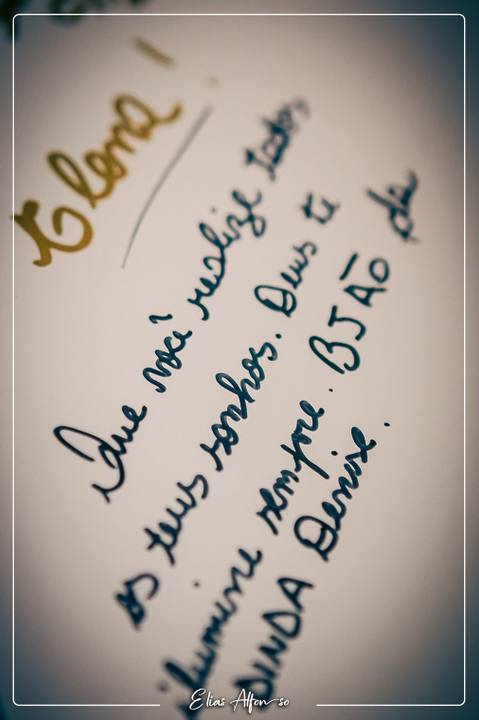 Elena!
Que você realize todos
os teus sonhos. Deus te
ilumine sempre. BJÃO da
DINDA Denise.
Elias Alfonso